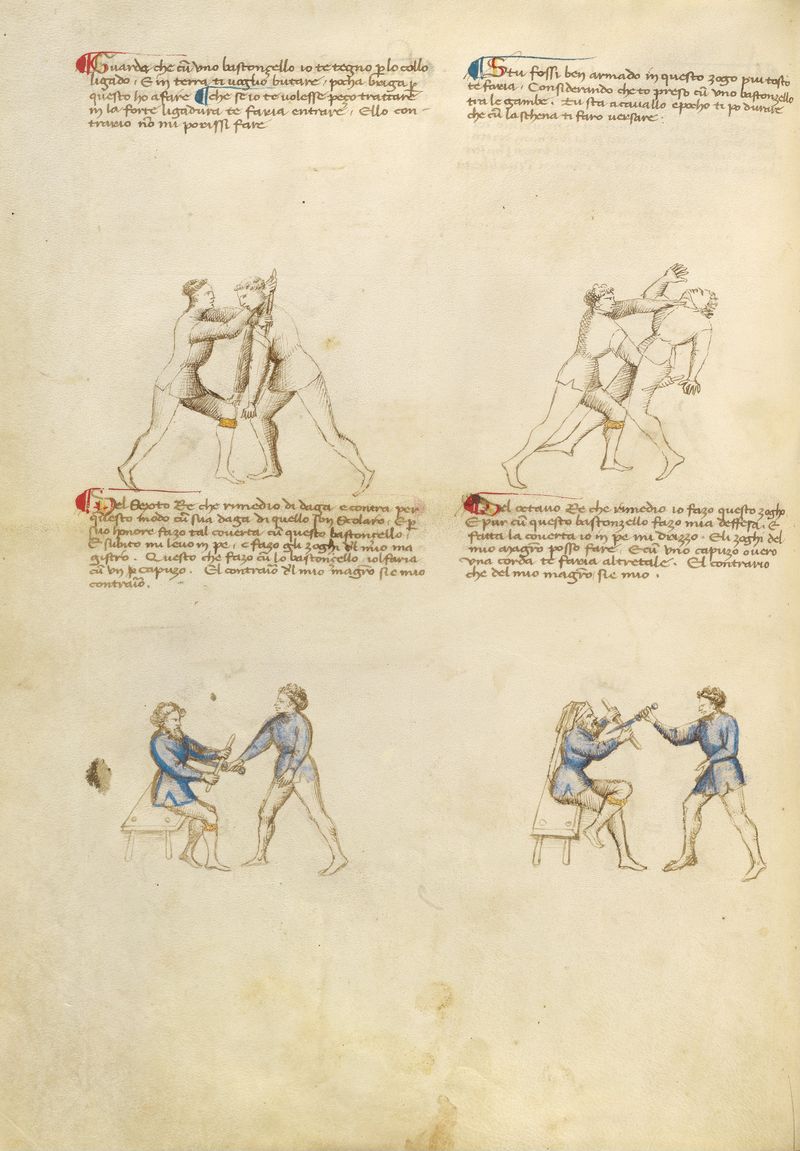 Guarda che cu uno bastonçello io te tegno p lo collo
ligado, E in terra ti voglio butare, pocha briga p
questo ho a fare che se io te volesse peço trattare
in la forte ligadura te faria entrare, E llo con-
trario nō mi porissi fare
Stu fossi ben armado in questo zogo piu tosto
te faria, Considerando che to preso cu uno bastonzello
tra le gambe. tu sta a cavallo e pocho ti po durare
che cu la schena ti faro versare.
Del Sexto Re che rimedio di daga e contra per
questo modo cu sua daga di quello son Scolaro, E p
suo honore fazo tal coverta cu questo bastonçello,
E subito mi levo in pe, e fazo gli zoghi dl mio ma
gistro. Questo che fazo cu lo bastonçello io l faria
cu un capuzo. El contraio dl mio magro si e mio
contraio.
Del octavo Re che rimedio io fazo questo zogho
E pur cu questo bastonzello fazo mia deffesa. E
fatta la coverta io in pe mi drizzo. E li zoghi del
mio magro posso fare, E cu uno capuzo overo
una corda te faria altretale. El contrario
che del mio magro si e mio.